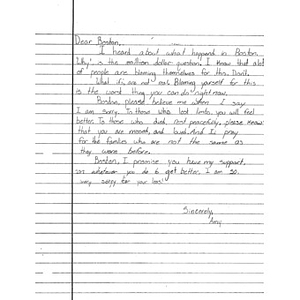 Dear Boston,
I heard about what happend in Boston.
"Why" is the million dollar question. I know that alot
of people are blaming themselves for this. Don't.
What ifs are not ask. Blaming yourself for this
is the worst thing you can do right now.
Boston, please believe me when I say
I am sorry. To those who lost limbs you will feel
better. To those who died, rest peacefully, please know
that you are missed, and loved. And I pray
for the families who are not the same as
they were before.
Boston, I promise you have my support.
in whatever you do to get better. I am so
very sorry for your loss!
Sincerely,
Amy